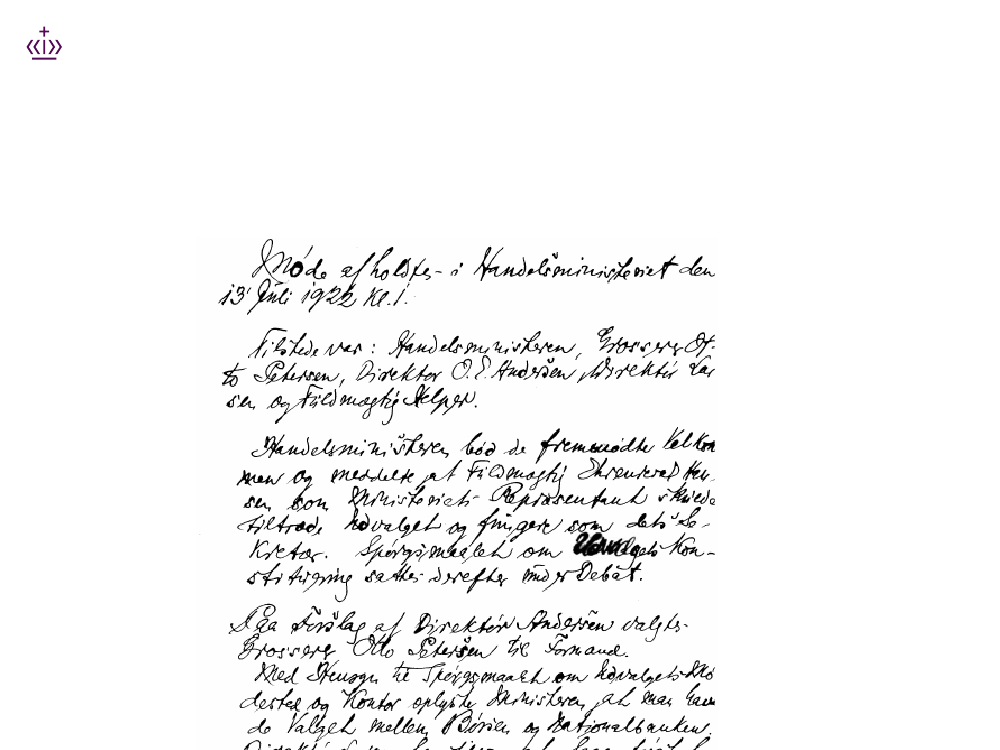 Möde afholdtes i Handelsministeriet den
13 Juli 1922 Kl. 1.
Tilstede var: Handelsministeren, Grosserer Ot-
to Petersen, Direktör O. E. Andersen, Direktör Lar
sen og Fuldmægtig Helper.
Handelsministeren böd de fremmödte Velkom
men og meddelte at Fuldmægtig
sen som Ministeriets Repræsentant skulde
tiltræde Udvalget og fungere som dets Se-
kretær. Spörgsmaalet om Kon-
stituering sattes derefter under Debat.
Paa Forslag af Direktör Andersen valgtes
Grosserer Otto Petersen til Formand.
Med Hensyn til Spörgsmaalet om Udvalgets Mö
dested og Kontor oplyste Ministeren, at man havde
Valget mellem Börsen og Nationalbanken.